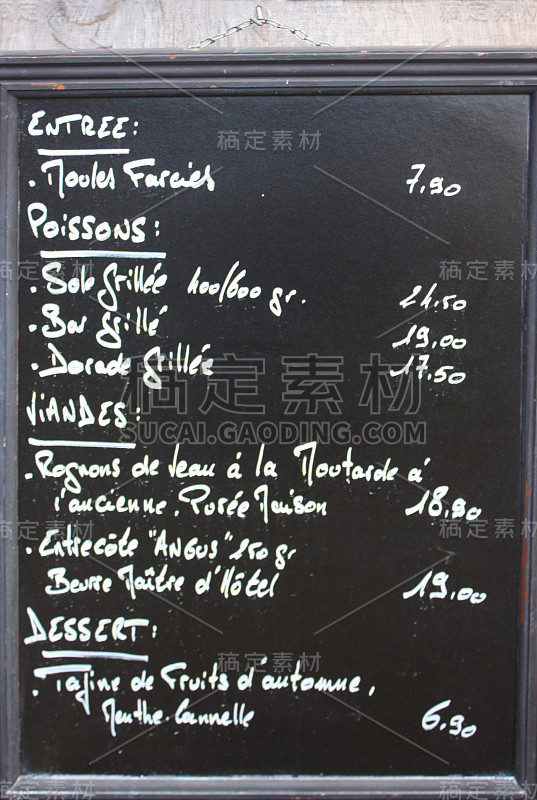 ENTREE:
. Moules Farcies 7.90
POISSONS:
. Sole Grillée 400/600 gr. 24.50
. Bar Grillé 19.00
. Dorade Grillée 17.50
VIANDES:
. Rognons de Veau à la Moutarde à
l'ancienne, Purée Maison 18.90
. Entrecôte "ANGUS" 250 gr
Beurre Maître d'Hôtel 19.00
DESSERT:
. Tajine de Fruits d'automne,
Menthe-Cannelle 6.90
稿定素材
SUCAI.GAODING.COM